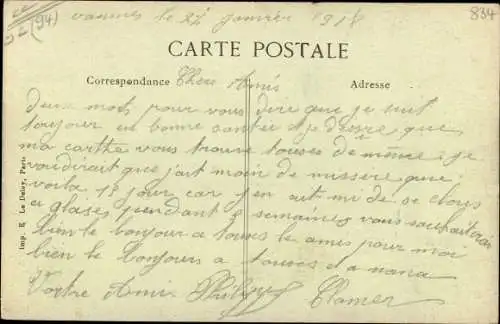 Vannes le 27 janvier 1918
52 (94)
834
CARTE POSTALE
Correspondance
Adresse
Chère Amis
deux mots pour vous dire que je suit
toujour en bonne santée et je desire que
ma cartte vous trouve touses de même. je
voudirait que j'ait moin de missere que
voila jour car j'en ait mi de se clous
a glaises pendant semaines vous
bien le bonjour a touses le amis pour moi
bien le bonjour a touses
Vostre Amis Philippe Clamer
Imp. E. Le Deley, Paris